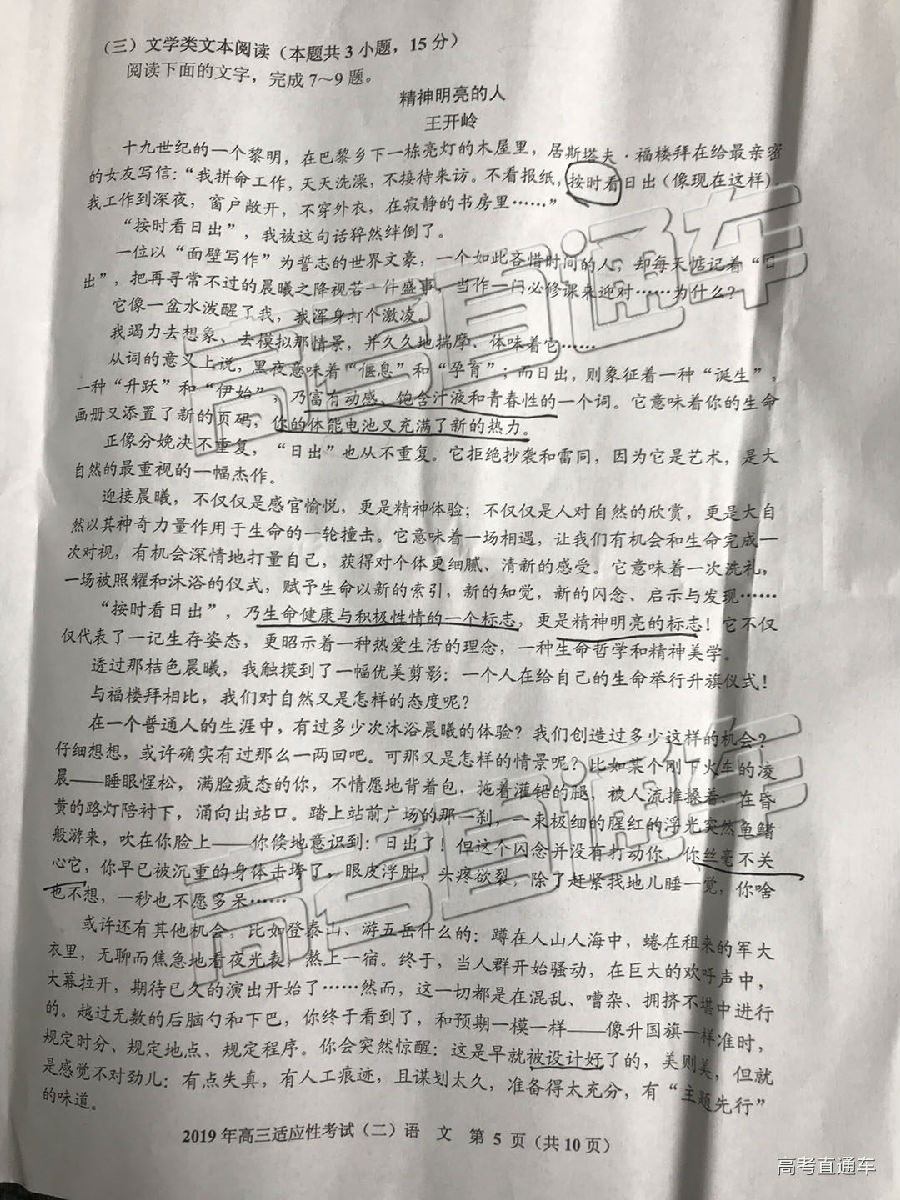 （三）文学类文本阅读（本题共3小题，15分）
阅读下面的文字，完成7～9题。
精神明亮的人
王开岭
十九世纪的一个黎明，在巴黎乡下一栋亮灯的木屋里，居斯塔夫·福楼拜在给最亲密
的女友写信：“我拼命工作，天天洗澡，不接待来访。不看报纸，按时看日出（像现在这样）
我工作到深夜，窗户敞开，不穿外衣，在寂静的书房里……”
“按时看日出”，我被这句话猝然绊倒了。
一位以“面壁写作”为誓志的世界文豪，一个如此吝惜时间的人，却每天惦记着“日
出”，把再寻常不过的晨曦之降视若一件盛事，当作一门必修课来迎对……为什么？
它像一盆水泼醒了我，我浑身打个激凌。
我竭力去想象，去模拟那情景，并久久地揣摩、体味着它……
从词的意义上说，黑夜意味着“偃息”和“孕育”；而日出，则象征着一种“诞生”，
一种“升跃”和“伊始”，乃富有动感、饱含汁液和青春性的一个词。它意味着你的生命
画册又添置了新的页码，你的体能电池又充满了新的热力。
正像分娩决不重复，“日出”也从不重复。它拒绝抄袭和雷同，因为它是艺术，是大
自然的最重视的一幅杰作。
迎接晨曦，不仅仅是感官愉悦，更是精神体验；不仅仅是人对自然的欣赏，更是大自
然以其神奇力量作用于生命的一轮撞击。它意味着一场相遇，让我们有机会和生命完成一
次对视，有机会深情地打量自己，获得对个体更细腻、清新的感受。它意味着一次洗礼，
一场被照耀和沐浴的仪式，赋予生命以新的索引，新的知觉，新的闪念、启示与发现……
“按时看日出”，乃生命健康与积极性情的一个标志，更是精神明亮的标志！它不仅
仅代表了一记生存姿态，更昭示着一种热爱生活的理念，一种生命哲学和精神美学。
透过那桔色晨曦，我触摸到了一幅优美剪影：一个人在给自己的生命举行升旗仪式！
与福楼拜相比，我们对自然又是怎样的态度呢？
在一个普通人的生涯中，有过多少次沐浴晨曦的体验？我们创造过多少这样的机会？
仔细想想，或许确实有过那么一两回吧。可那又是怎样的情景呢？比如某个刚下火车的凌
晨——睡眼惺松，满脸疲态的你，不情愿地背着包，拖着灌铅的腿，被人流推搡着，在昏
黄的路灯陪衬下，涌向出站口。踏上站前广场的那一刹，一束极细的腥红的浮光突然鱼鳍
般游来，吹在你脸上——你倏地意识到：日出了！但这个闪念并没有打动你，你丝毫不关
心它，你早已被沉重的身体击垮了，眼皮浮肿，头疼欲裂，除了赶紧找地儿睡一觉，你啥
也不想，一秒也不愿多呆……
或许还有其他机会，比如登泰山、游五岳什么的：蹲在人山人海中，蜷在租来的军大
衣里，无聊而焦急地看夜光表，熬上一宿。终于，当人群开始骚动，在巨大的欢呼声中，
大幕拉开，期待已久的演出开始了……然而，这一切都是在混乱、嘈杂、拥挤不堪中进行
的。越过无数的后脑勺和下巴，你终于看到了，和预期一模一样——像升国旗一样准时，
规定时分、规定地点、规定程序。你会突然惊醒：这是早就被设计好了的，美则美，但就
是感觉不对劲儿：有点失真，有人工痕迹，且谋划太久，准备得太充分，有“主题先行”
的味道。
2019年高三适应性考试（二）语 文 第 5 页（共10页）
高考直通车
高考直通车
高考直通车